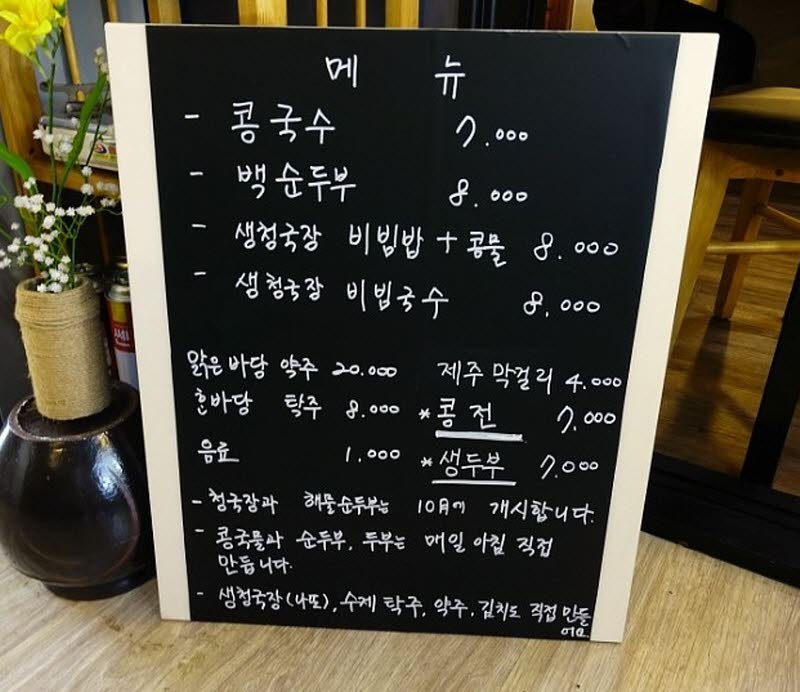 메 뉴
- 콩국수 7.000
- 백순두부 8.000
- 생청국장 비빔밥 + 콩물 8.000
- 생청국장 비빔국수 8.000
맑은 바당 약주 20.000 제주 막걸리 4.000
한바당 탁주 8.000 * 콩전 7.000
음료 1.000 * 생두부 7.000
- 청국장과 해물순두부는 10月에 개시합니다.
- 콩국물과 순두부, 두부는 매일 아침 직접
만듭니다.
- 생청국장(나또), 수제 탁주, 약주, 김치도 직접 만들
어요.